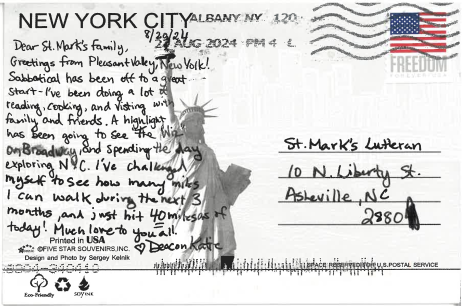 NEW YORK CITY
ALBANY NY 120
22 AUG 2024 PM 4 L
FREEDOM
8/20/24
Dear St. Mark's family,
Greetings from Pleasant Valley, New York!
Sabbatical has been off to a great
start - I've been doing a lot of
reading, cooking, and visting with
family and friends. A highlight
has been going to see "the Wiz"
on Broadway, and spending the day
exploring NYC. I've challenged
myself to see how many miles
I can walk during the next 3
months, and just hit 40 miles as of
today! Much love to you all.
♡ Deacon Katie
St. Mark's Lutheran
10 N. Liberty St.
Asheville, NC
2880
Printed in USA
©FIVE STAR SOUVENIRS, INC.
Design and Photo by Sergey Kelnik
SPACE RESERVED FOR U.S. POSTAL SERVICE
Eco-Friendly
SOY INK